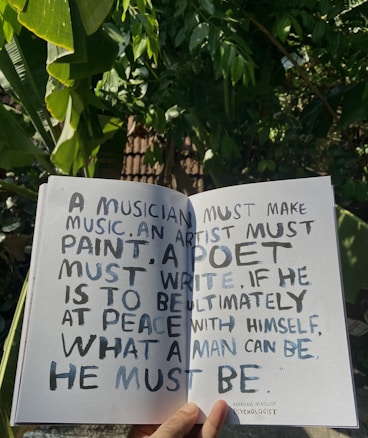 A MUSICIAN MUST MAKE
MUSIC, AN ARTIST MUST
PAINT, A POET
MUST WRITE, IF HE
IS TO BE ULTIMATELY
AT PEACE WITH HIMSELF,
WHAT A MAN CAN BE,
HE MUST BE."
ABRAHAM MASLOW
PSYCHOLOGIST